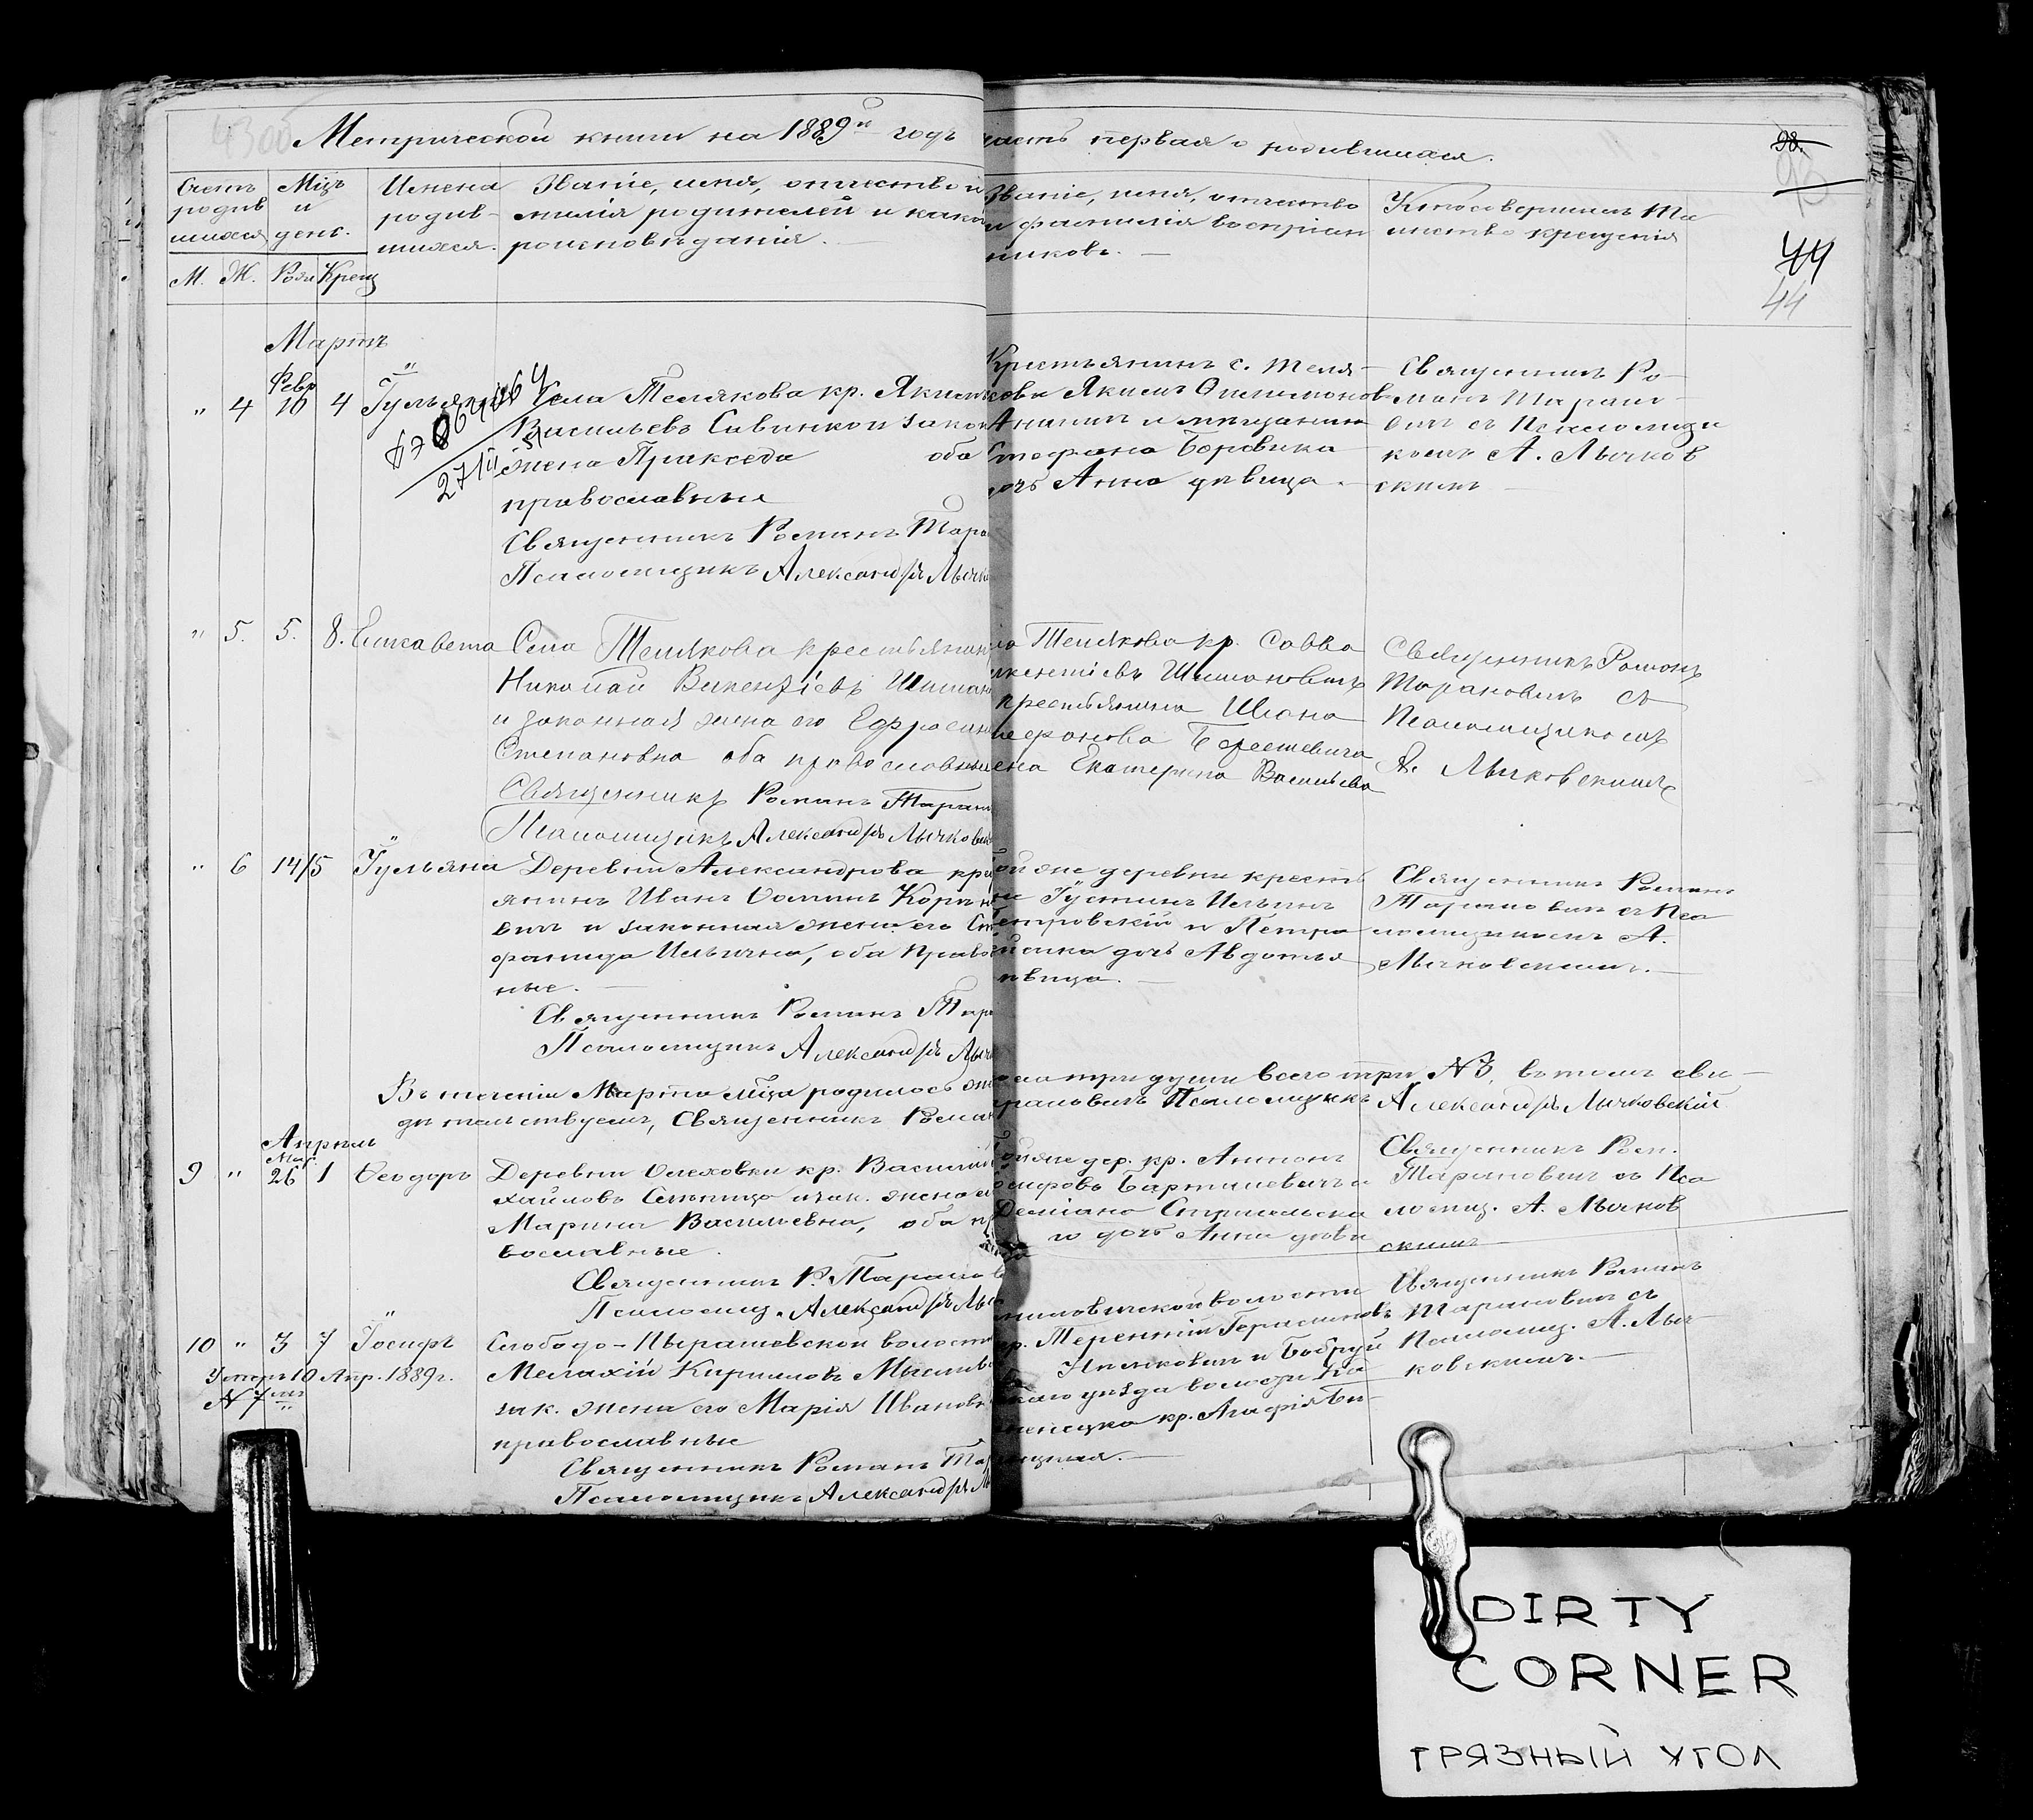 Метрической книги на 1889й годъ
часть первая о родившихся.
98.
44
44
Счетъ родив шихся
Мцъ и день.
Имена родив- шихся.
Званіе, имя, отчество и
милія родителей и како
роисповѣданія.
Званіе, имя, отчество
и фамилія воспріем
никовъ. —
Кто совершалъ Та
инство крещенія
М. Ж. Родж Крещ
Мартъ
Февр
" 4 10 4 Іульянія
27/II
Села Телякова кр. Якимъ
Васильевъ Савинкои закон
жена Пракседа оба
православныя
Священникъ Романъ Тара
Псаломщикъ Александръ Лычк
Крестьянинъ с. Теля-
кова Якимъ
Ананичъ и мѣщанина
Стефана Боровика
дочь Анна дѣвица. —
Священникъ Ро-
манъ Таран-
вичъ съ Псаломщи
комъ А. Лычков
скимъ —
" 5. 5. 8. Елисавета
Села Телякова крестьянин
Николай Викентіевъ Шиман
и законная жена его Ефросин
Степановна оба православные
Священникъ Романъ Таран
Псаломщикъ Александръ Лычковс
ла Телякова кр. Савва
икентіевъ Шимановичъ
крестьянина
Берестевича
ена Екатерина Васильева
Священникъ Романъ
Тарановичъ съ
Псаломщикомъ
А. Лычковскимъ
" 6 14/5 Іульяна
Деревни Александрова кре
янинъ Иванъ Ѳоминъ Корн
вичъ и законная жена его Ст
фанида Ильична, оба Право
ные. —
Священникъ Романъ Тар
Псаломщикъ Александръ Лыч
Той же деревни кресть
Іустинъ Ильинъ
Петровскій и Петра
дочь Авдотья
ѣвица. —
Священникъ Романъ
Тарановичъ съ Пса
ломщикомъ А.
Лычковскимъ. —
Въ теченіи Марта мца родилось же
ска три души всего три № 3, въ томъ сви-
дѣтельствуемъ, Священникъ Роман
рановичъ Псаломщикъ Александръ Лычковскій
Апрель
Мар.
9 " 26 1 Ѳеодоръ
Деревни Олеховки кр. Василій
хайловъ Синица и зак. жена е
Марина Васильевна, оба п
вославные.
Священникъ Р. Таранов
Псаломщ. Александръ Лыч
Той же дер. кр. Антонъ
сифовъ Бартишевичъ и
Деміана
го дочь Анна дѣви
Священникъ Ром.
Тарановичъ съ Пса
ломщ. А. Лычков
скимъ
10 " 3 7 Іосифъ
Умеръ 10 Апр. 1889г.
№ 7
Слободо-Пырашевской волости
Малахій Кириловъ Мысливе
зак. жена его Марія Ивановн
православные
Священникъ Романъ Та
Псаломщикъ Александръ Л
волости
кр. Терентій Герасимовъ
и Бобруй
скаго уѣзда волости
кр. Агафія Би-
Священникъ Романъ
Тарановичъ съ
Псаломщ. А. Лыч-
ковскимъ. —
DIRTY
CORNER
ГРЯЗНЫЙ УГОЛ